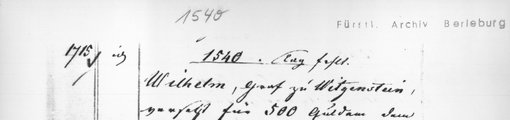 1540
Fürstl. Archiv Berleburg
1715 1540. Tag fehlt.
Wilhelm, Graf zu Witgenstein,
versetzt für 500 Gulden dem